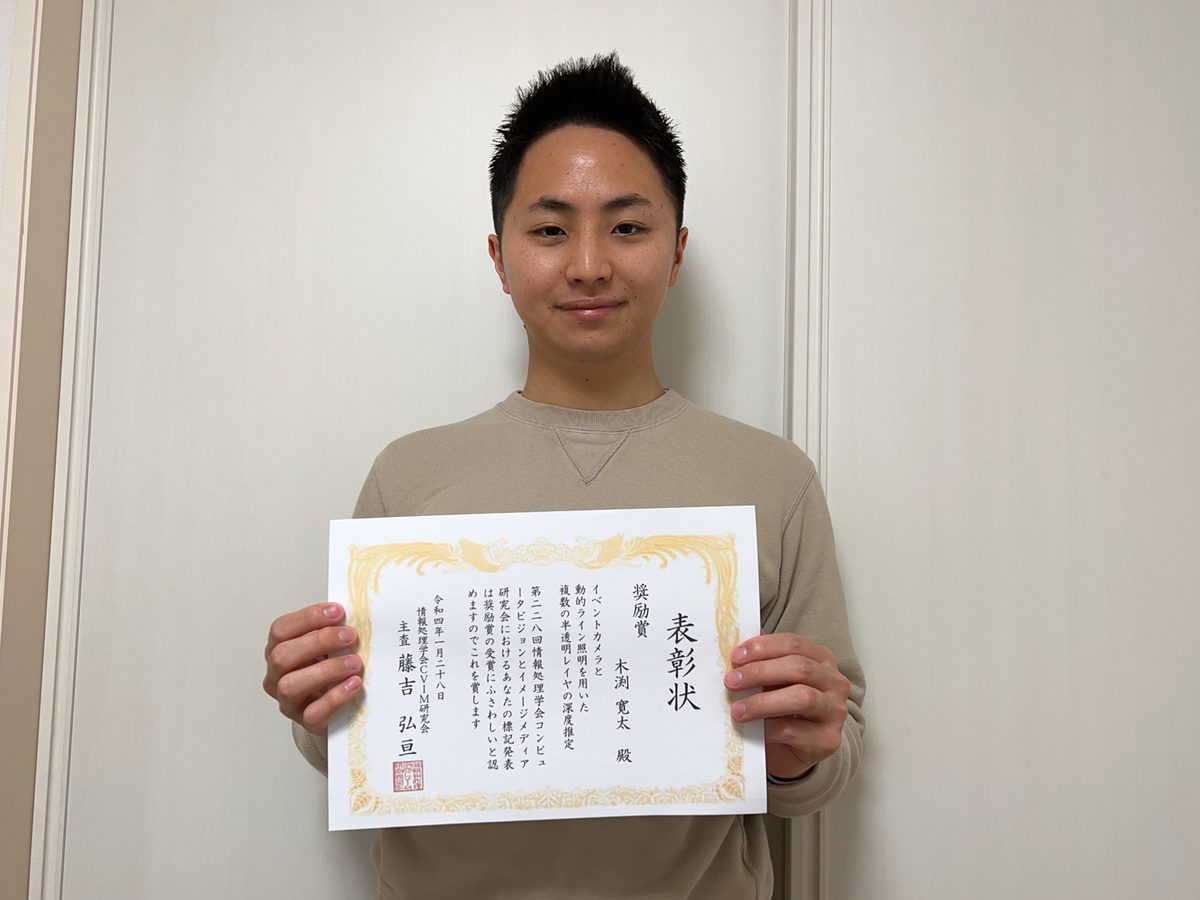 表彰状
奨励賞
木渕 寛太 殿
イベントカメラと
動的ライン照明を用いた
複数の半透明レイヤの深度推定
第二二八回情報処理学会コンピュ
ータビジョンとイメージメディア
研究会におけるあなたの標記発表
は奨励賞の受賞にふさわしいと認
めますのでこれを賞します
令和四年一月二十八日
情報処理学会CVIM研究会
主査 藤吉 弘亘